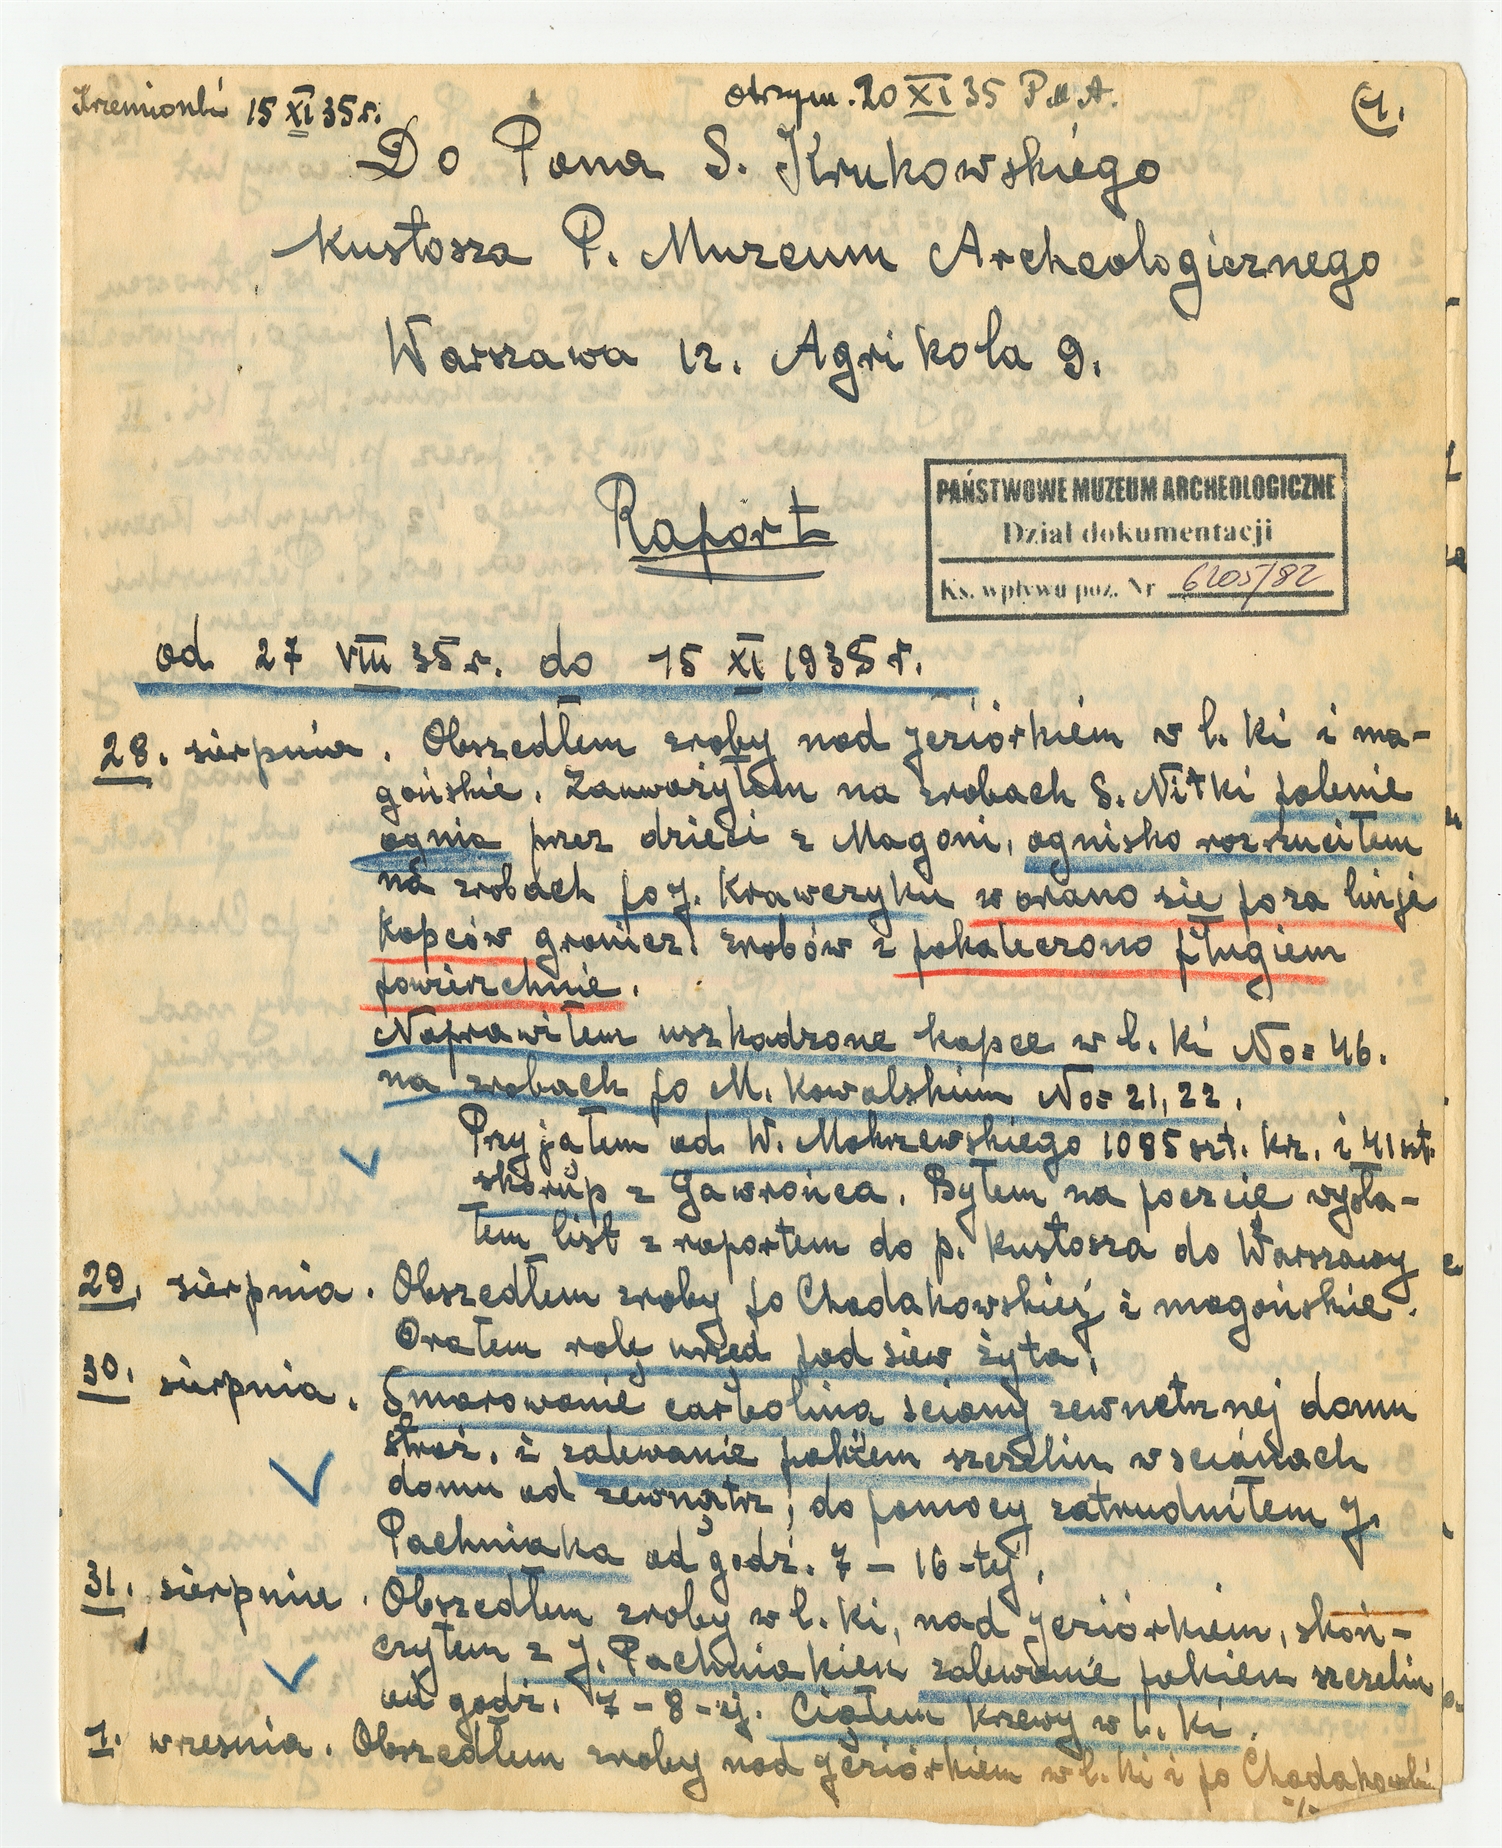 Krzemionki 15 XI 35 r.
otrzym. 20 XI 35 P.M.A.
(1.
Do Pana S. Krukowskiego
Kustosza P. Muzeum Archeologicznego
Warszawa 12. Agrikola 9.
Raport
PAŃSTWOWE MUZEUM ARCHEOLOGICZNE
Dział dokumentacji
Ks. wpływu poz. Nr 6205/82
od 27 VIII 35 r. do 15 XI 1935 r.
28. sierpnia. Obszedłem zroby nad jeziórkiem w l. Ki i ma-
gońskie. Zauważyłem na zrobach S. Nitki polenie
ognia przez dzieci z Magoni, ognisko rozrzuciłem
na zrobach po J. Krawczyku worano się poza linję
Kopców granicz. zrobów i pokaleczono pługiem
powierzchnie.
Naprawiłem uszkodzone kopce w l. Ki No= 46.
na zrobach po M. Kowalskim No= 21, 22.
Przyjąłem od W. Mokrzewskiego 1085 szt. kr. i 41 szt.
skorup z Gawrońca. Byłem na poczcie wysła-
łem list z raportem do p. Kustosza do Warszawy
29. sierpnia. Obszedłem zroby po Chodakowskiej i magońskie.
Orałem rolę urzęd pod siew żyta.
30. sierpnia. Smarowanie carbolina sciany zewnetrznej domu
straż. i zalewanie pakiem szczelin w scianach
domu od zewnątrz, do pomocy zatrudniłem J.
Pachniaka od godz. 7 - 16-tej.
31. sierpnia. Obszedłem zroby w l. Ki, nad jeziórkiem, skoń-
czyłem z J. Pachniakiem zalewanie pakiem szczelin
od godz. 7 - 8-ej. Ciąłem krzewy w l. Ki.
1. wrzesnia. Obszedłem zroby nad jeziórkiem w l. Ki i po Chodakowski